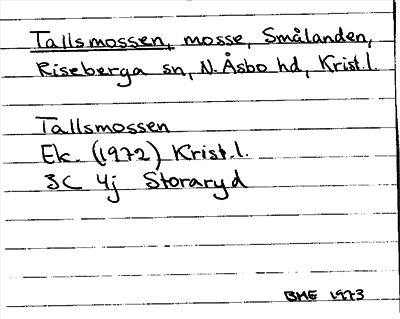 Tallsmossen, mosse, Smålanden,
Riseberga sn, N. Åsbo hd, Krist.l.
Tallsmossen
Ek. (1972) Krist.l.
3C 4j Storaryd
BME 1973